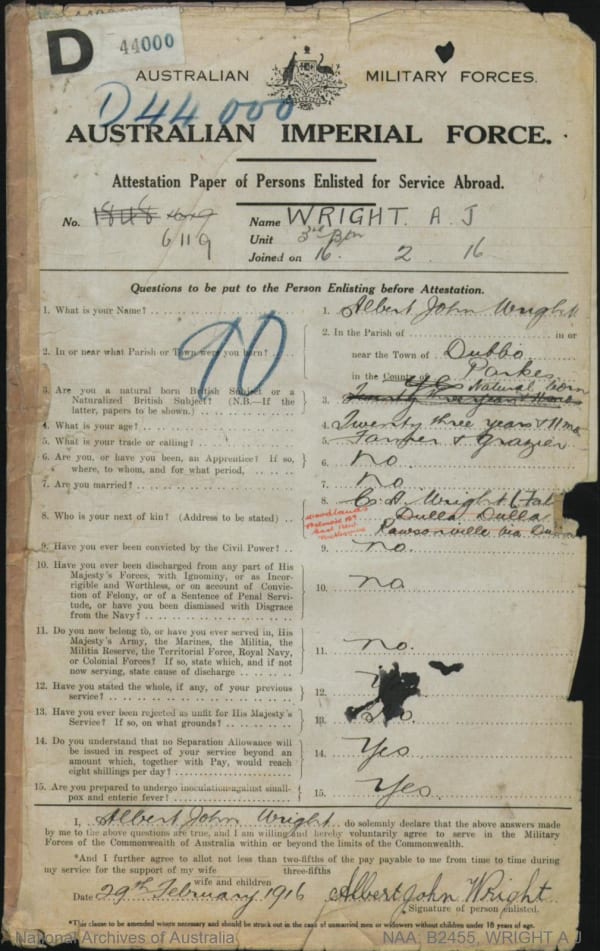 D
44000
AUSTRALIAN MILITARY FORCES.
D44000
AUSTRALIAN IMPERIAL FORCE.
Attestation Paper of Persons Enlisted for Service Abroad.
No. 1848 Name WRIGHT. A. J
6119 Unit 3rd Btn
Joined on 16. 2 16
Questions to be put to the Person Enlisting before Attestation.
1. What is your Name? 1. Albert John Wright
2. In or near what Parish or Town were you born? 2. In the Parish of in or
near the Town of Dubbo
in the County of Parkes
90
3. Are you a natural born British Subject or a Naturalized British Subject? (N.B.—If the latter, papers to be shown.) 3. Yes Natural born
4. What is your age? 4. Twenty three years &
5. What is your trade or calling? 5. Farmer & Grazier
6. Are you, or have you been, an Apprentice? If so, where, to whom, and for what period, 6. no.
7. Are you married? 7. No
8. Who is your next of kin? (Address to be stated) 8. C. A. Wright (Fat
Dulla Dulla
Rawsonville via Du
Woodlands
9. Have you ever been convicted by the Civil Power? 9. no.
10. Have you ever been discharged from any part of His
Majesty's Forces, with Ignominy, or as Incor-
rigible and Worthless, or on account of Convic-
tion of Felony, or of a Sentence of Penal Servi-
tude, or have you been dismissed with Disgrace
from the Navy? 10. no
11. Do you now belong to, or have you ever served in, His
Majesty's Army, the Marines, the Militia, the
Militia Reserve, the Territorial Force, Royal Navy,
or Colonial Forces? If so, state which, and if not
now serving, state cause of discharge 11. no.
12. Have you stated the whole, if any, of your previous
service? 12.
13. Have you ever been rejected as unfit for His Majesty's
Service? If so, on what grounds? 13. No.
14. Do you understand that no Separation Allowance will
be issued in respect of your service beyond an
amount which, together with Pay, would reach
eight shillings per day? 14. Yes
15. Are you prepared to undergo inoculation against small-
pox and enteric fever? 15. Yes.
I, Albert John Wright do solemnly declare that the above answers made
by me to the above questions are true, and I am willing and hereby voluntarily agree to serve in the Military
Forces of the Commonwealth of Australia within or beyond the limits of the Commonwealth.
*And I further agree to allot not less than two-fifths of the pay payable to me from time to time during
my service for the support of my wife three-fifths
wife and children
Date 29th February 1916 Albert John Wright
Signature of person enlisted.
*This clause to be amended where necessary and should be struck out in the case of unmarried men or widowers without children under 18 years of age.
National Archives of Australia NAA: B2455, WRIGHT A J